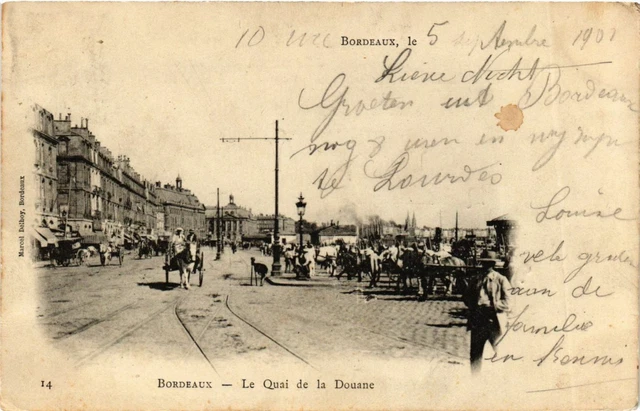 10 uur BORDEAUX, le 5 septembre 1901
Lieve Nicht
Groeten uit Bordeaux
nog 8 uren en wij zijn
te Lourdes
Louise
vele groeten
aan de
familie
en Kennis
Marcel Delboy, Bordeaux
14 BORDEAUX — Le Quai de la Douane